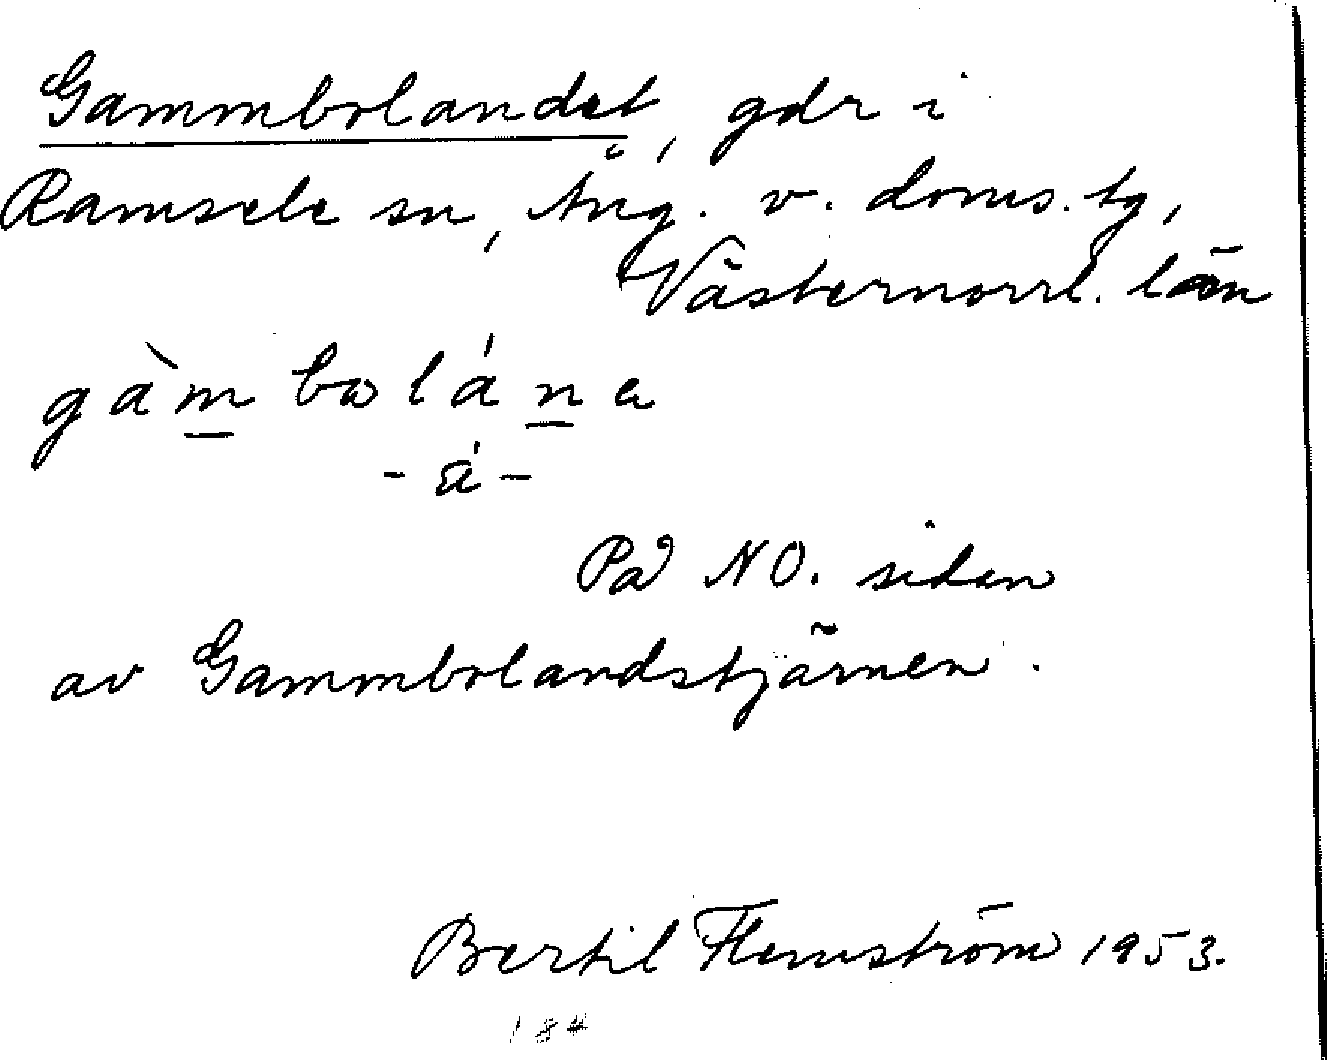 Gammbolandet, gdr i
Ramsele sn, Ång. v. doms. tg,
Västernorrl. län
gàm bωlána
- á -
På NO. sidan
av Gammbolandstjärnen.
Bertil Flemström 1953.
184